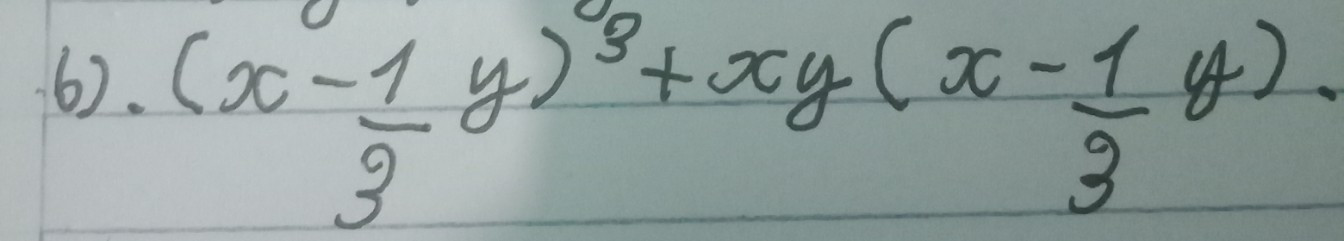 b). (x - 1/3 y)³ + xy (x - 1/3 y).